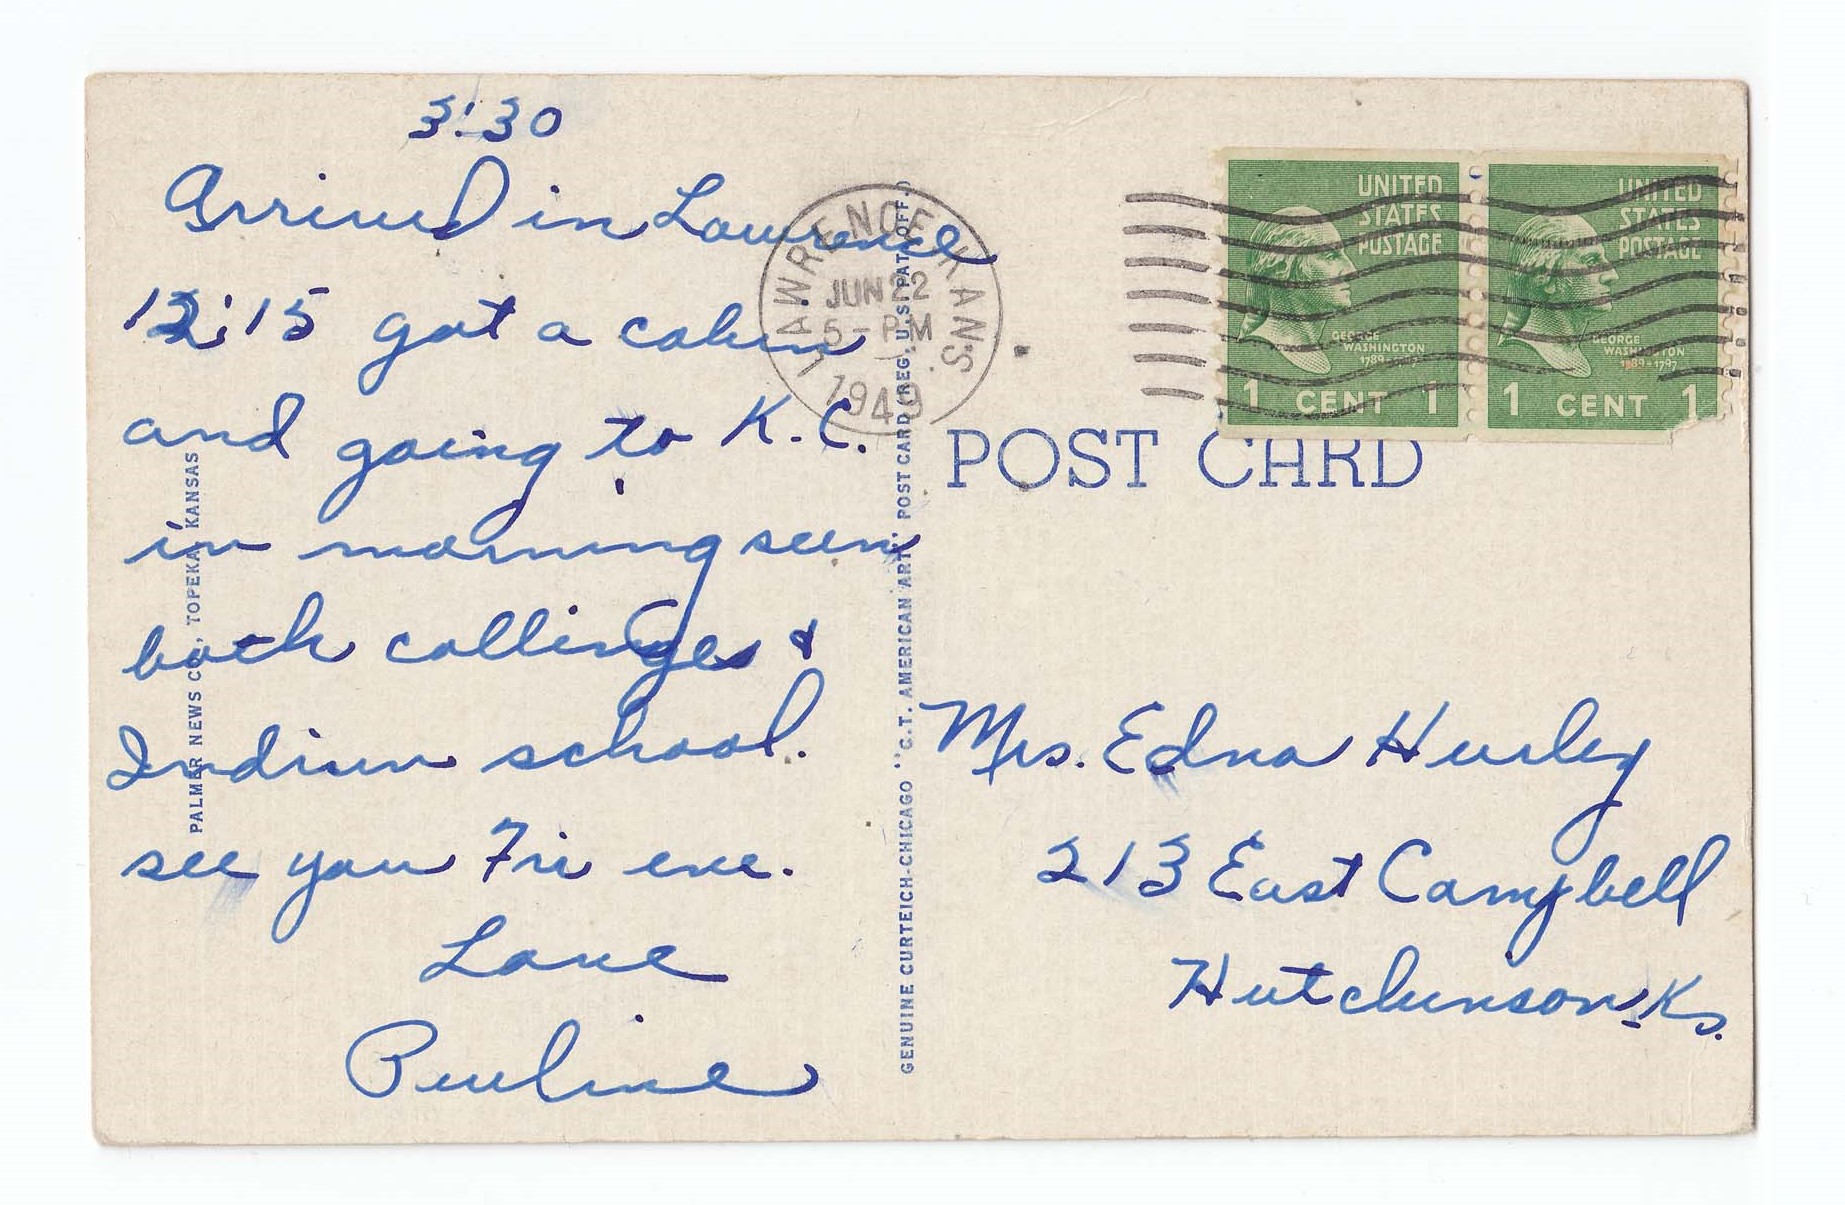 3:30
Arrived in Lawrence
12:15 got a cabin
and going to K.C.
in morning seen
both collinges &
Indian school.
see you Fri eve.
Love
Pauline
PALMER NEWS CO., TOPEKA, KANSAS
GENUINE CURTEICH-CHICAGO "C.T. AMERICAN ART" POST CARD (REG. U.S. PAT. OFF.)
LAWRENCE KANS.
JUN 22
5-PM
1949
UNITED
STATES
POSTAGE
GEORGE
WASHINGTON
1789-1797
1 CENT 1
UNITED
STATES
POSTAGE
GEORGE
WASHINGTON
1789-1797
1 CENT 1
POST CARD
Mrs. Edna Hurley
213 East Campbell
Hutchinson, Ks.